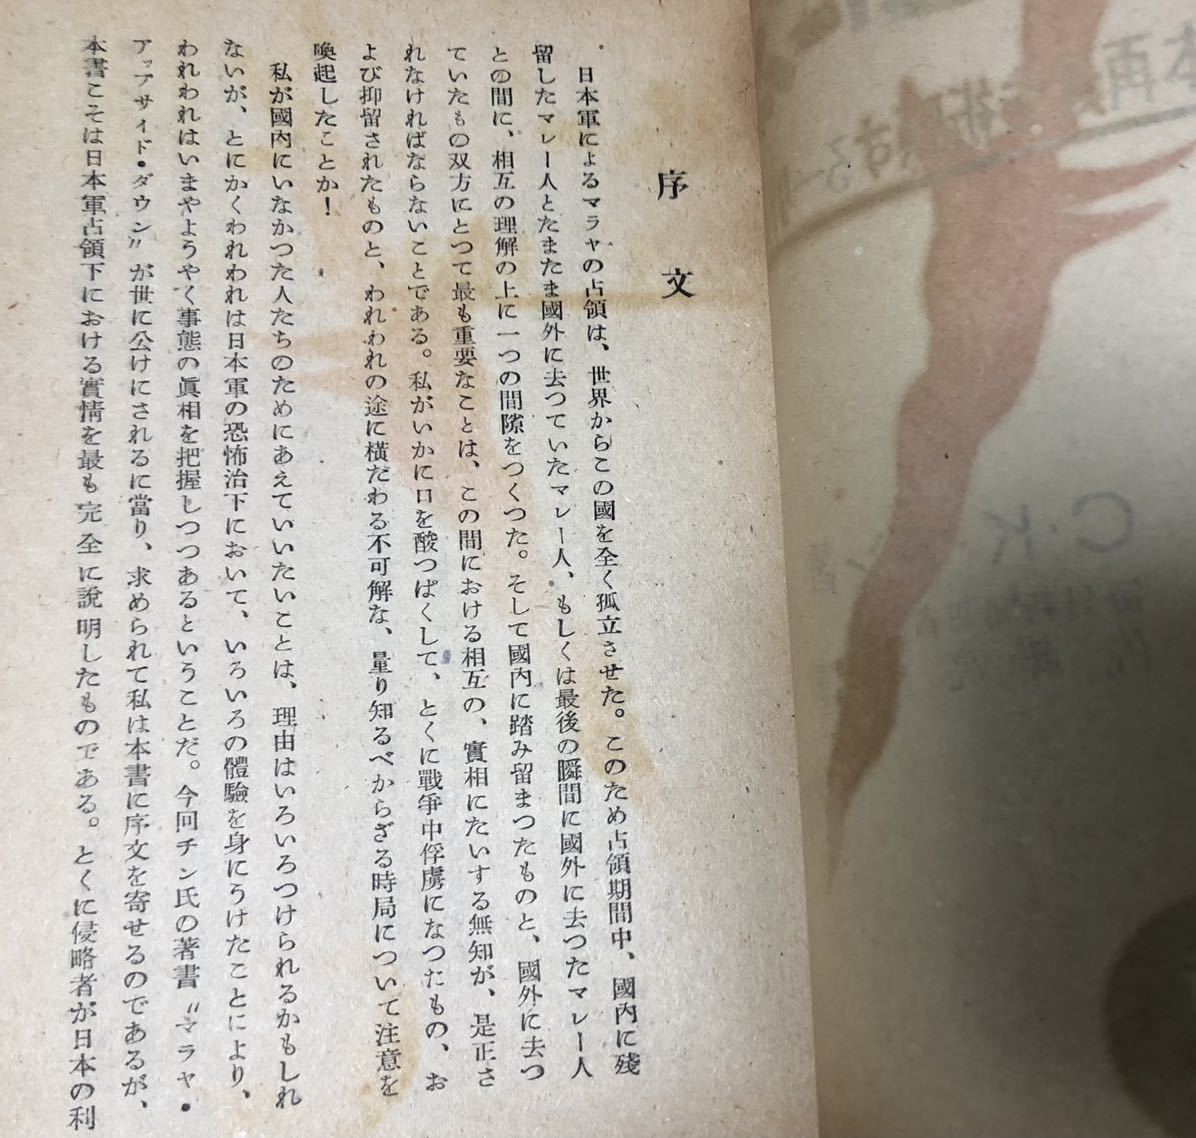 序文
日本軍によるマラヤの占領は、世界からこの國を全く孤立させた。このため占領期間中、國内に殘
留したマレー人とたまたま國外に去つていたマレー人、もしくは最後の瞬間に國外に去つたマレー人
との間に、相互の理解の上に一つの間隙をつくつた。そして國内に踏み留まつたものと、國外に去つ
ていたもの双方にとつて最も重要なことは、この間における相互の、實相にたいする無知が、是正さ
れなければならないことである。私がいかに口を酸つぱくして、とくに戰爭中俘虜になつたもの、お
よび抑留されたものと、われわれの途に橫だわる不可解な、量り知るべからざる時局について注意を
喚起したことか！
私が國内にいなかつた人たちのためにあえていいたいことは、理由はいろいろつけられるかもしれ
ないが、とにかくわれわれは日本軍の恐怖治下において、いろいろの體驗を身にうけたことにより、
われわれはいまやようやく事態の眞相を把握しつつあるということだ。今回チン氏の著書〝マラヤ・
アップサイド・ダウン〟が世に公けにされるに當り、求められて私は本書に序文を寄せるのであるが、
本書こそは日本軍占領下における實情を最も完全に説明したものである。とくに侵略者が日本の利
C・K・